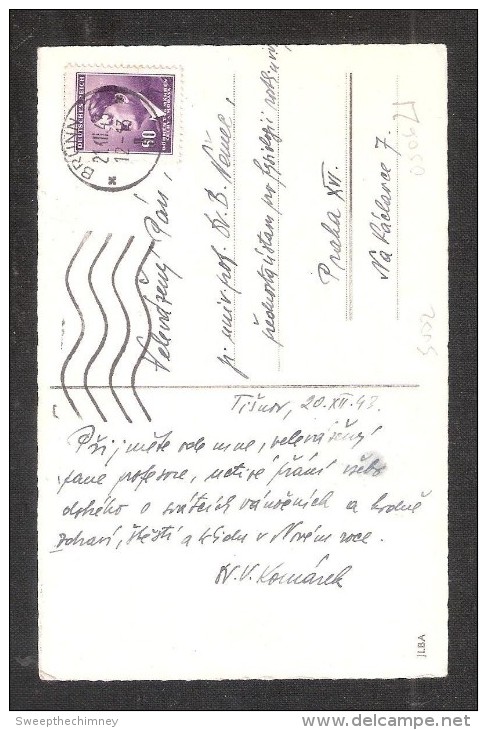 DEUTSCHES REICH
60
BÖHMEN UND MÄHREN
BRÜNN
21.XII.43
12-13
*
Velevážený Pán,
p. univ. prof. Dr. B. Němec,
přednosta ústavu pro fysiologii rostlin,
Praha XVI.
Na Václavce 7.
Tišnov, 20.XII.43.
Přijměte ode mne, velevážený
pane profesore, uctivé přání všeho
dobrého o svátcích vánočních a hodně
zdraví, štěstí a klidu v Novém roce.
Dr. V. Komárek
JLBA
Sweepthechimney
www.delcampe.net